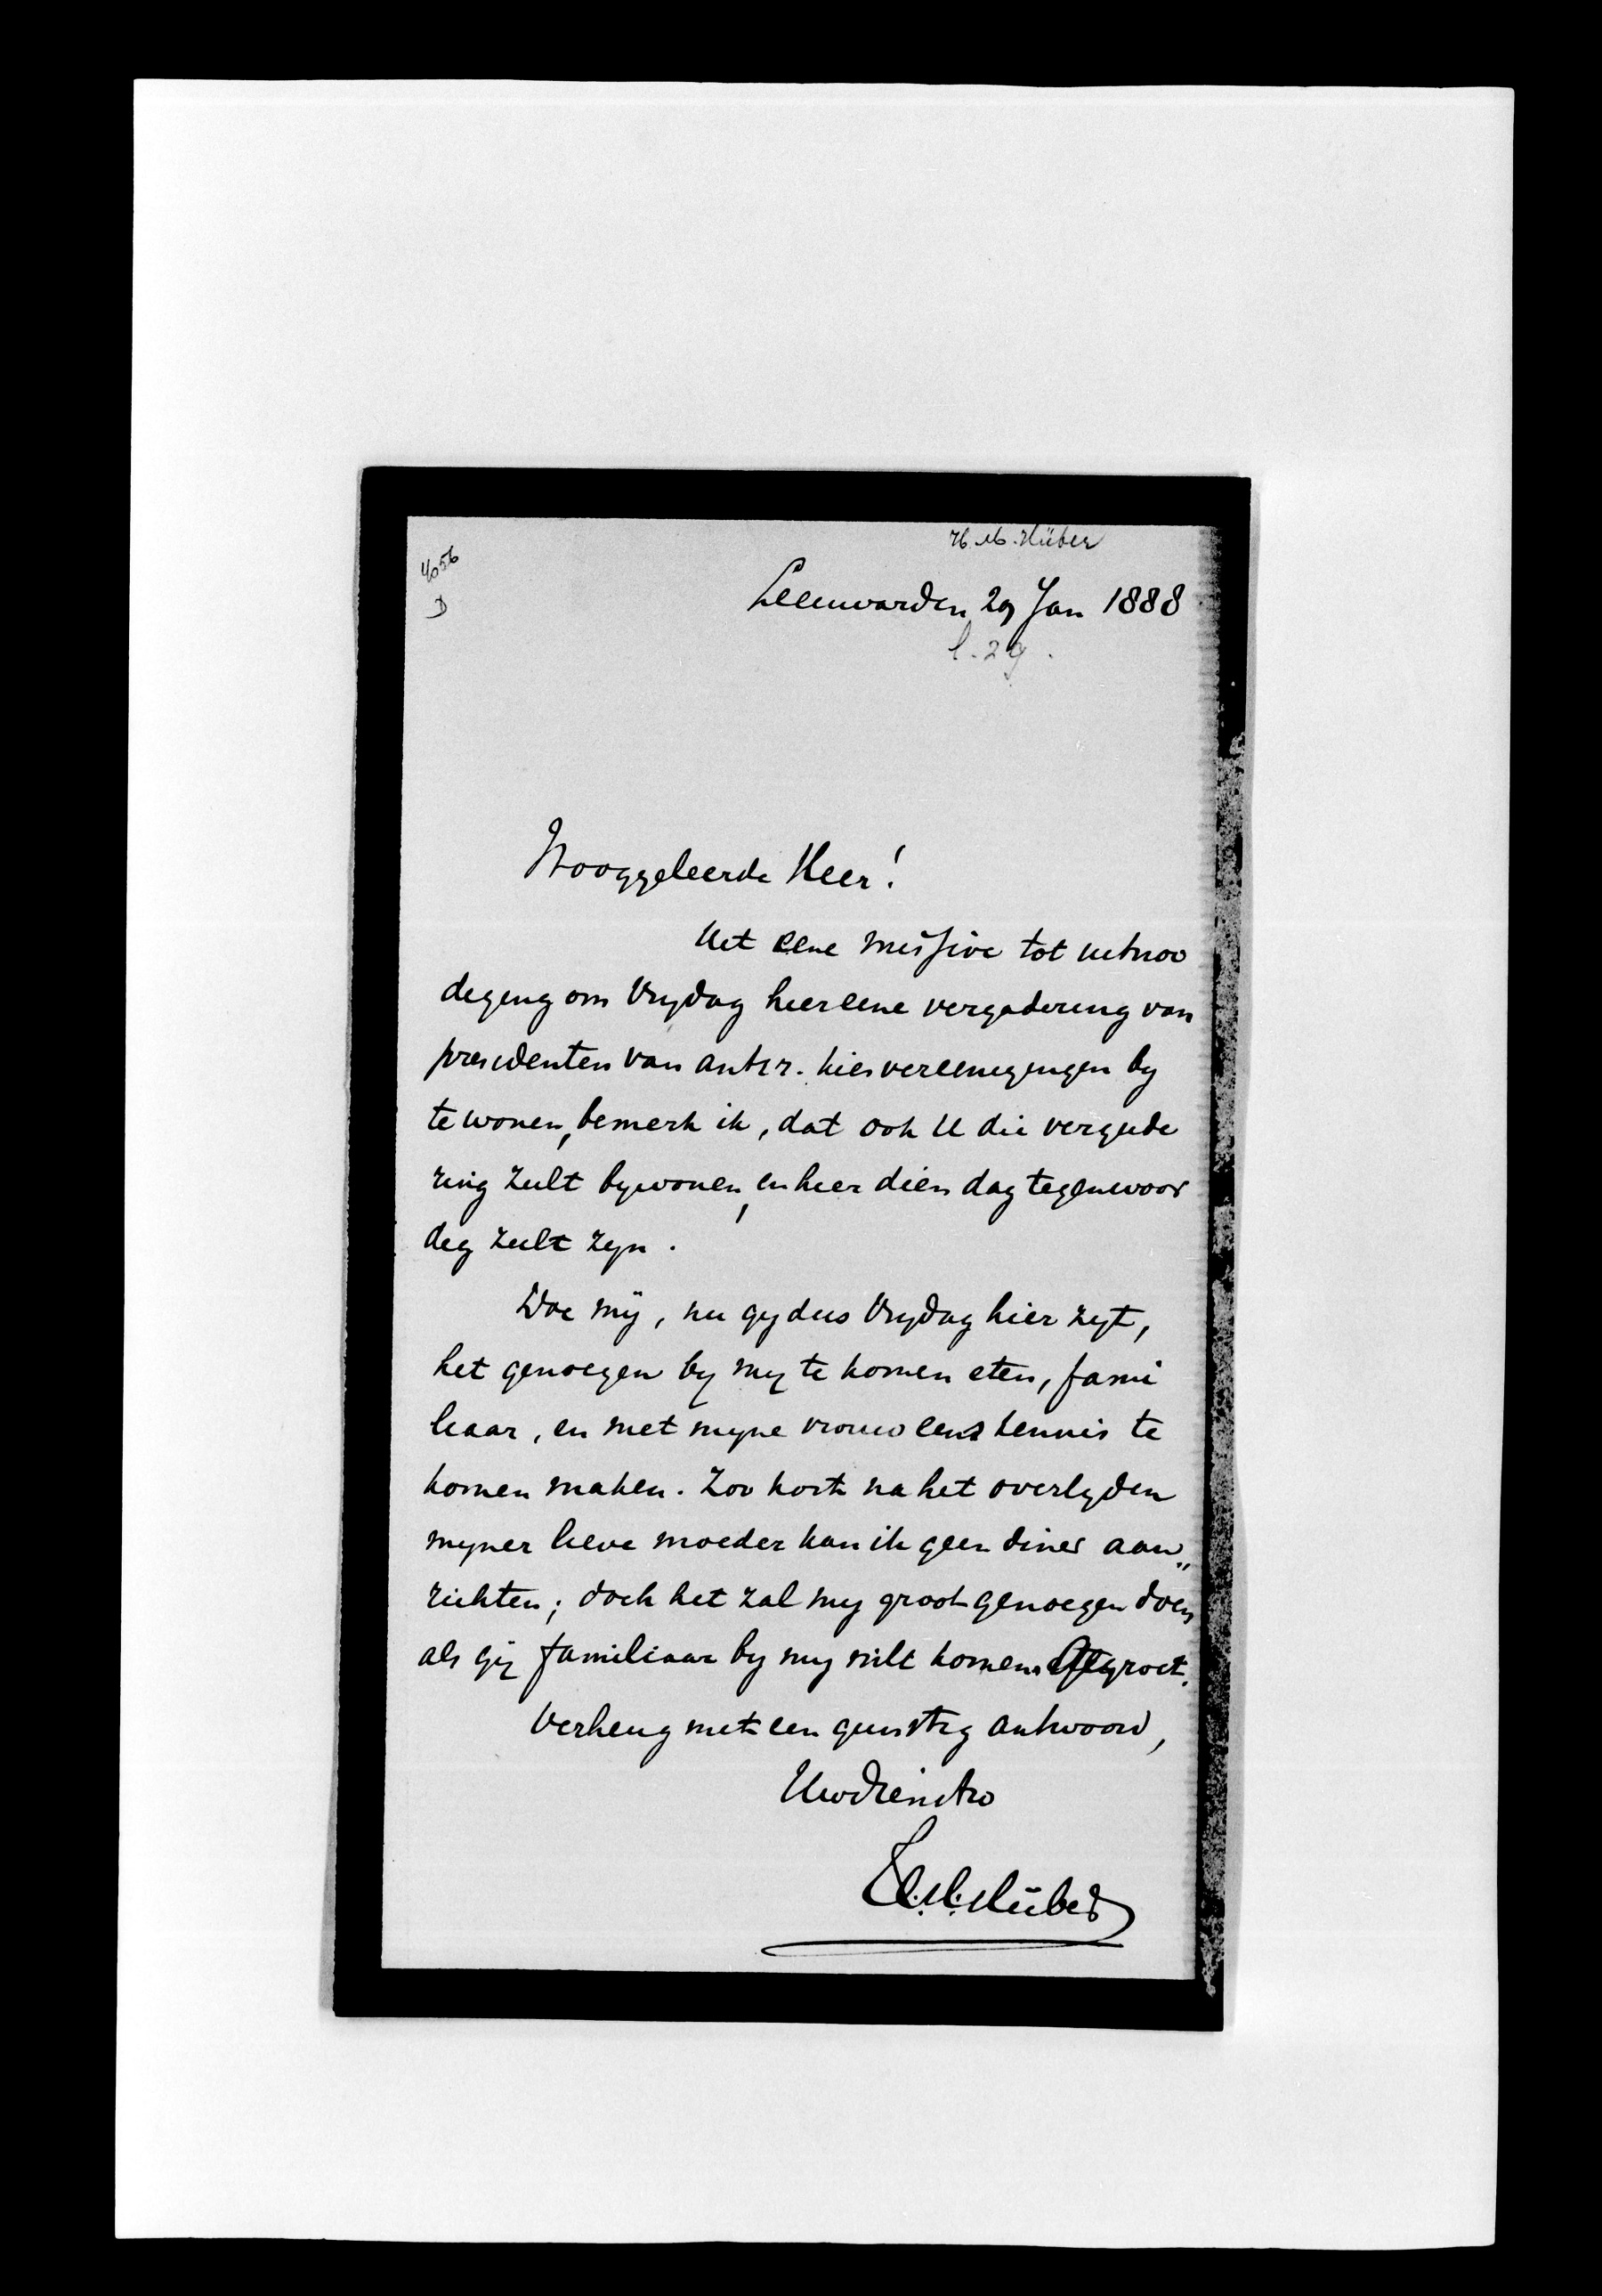 H. M. Hüber
4056
D
Leeuwarden 29 Jan 1888
l. 29.
Hooggeleerde Heer!
Uit eene missive tot uitnoo
diging om Vrydag hier eene vergadering van
presidenten van antir. kiesvereenigingen by
te wonen, bemerk ik, dat ook U die vergade
ring zult bywonen, en hier dien dag tegenwoor
dig zult zyn.
Doe mij, nu gy dus Vrydag hier zyt,
het genoegen by my te komen eten, fami
liaar, en met myne vrouw eens kennis te
komen maken. Zoo kort na het overlyden
myner lieve moeder kan ik geen diner aan„
richten; doch het zal my groot genoegen doen
als gij familiaar by my wilt komen. Gegroet.
Verheug met een gunstig antwoord,
Uwdienstw
H.M. Hüber